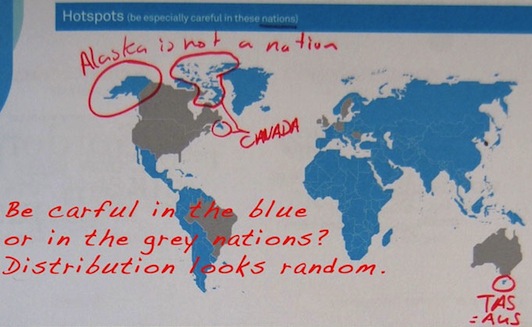 Hotspots (be especially careful in these nations)
Alaska is not a nation
CANADA
Be carful in the blue
or in the grey nations?
Distribution looks random.
TAS
= Aus